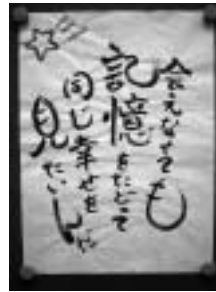 会えなくても
記憶をたどって
同じ幸せを
見たいんだ